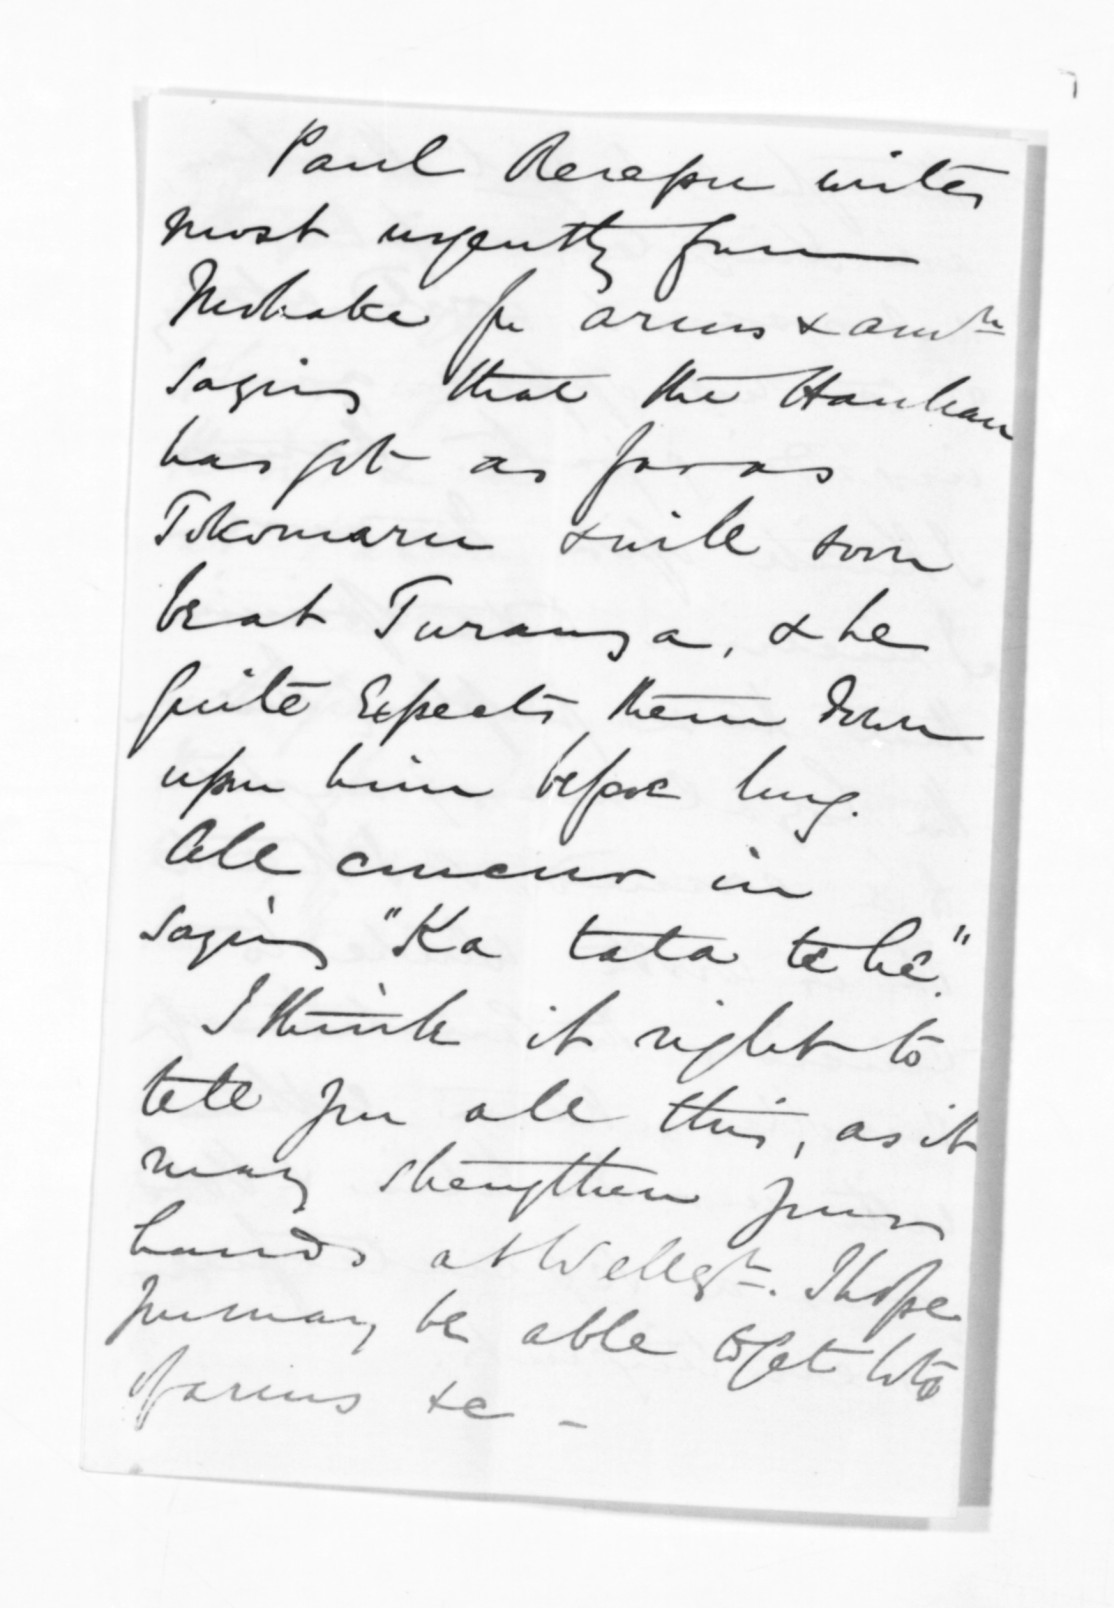 Paul Rerepu writes
most urgently from
Mohaka for arms & amn
saying that the Hauhau
has got as far as
Tokomaru & will soon
be at Turanga, & he
quite expects them down
upon him before long.
All concur in
saying "Ka tata te hê."
I think it right to
tell you all this, as it
may strengthen your
hands at Wellgtn. I hope
you may be able to get lots
of arms &c –